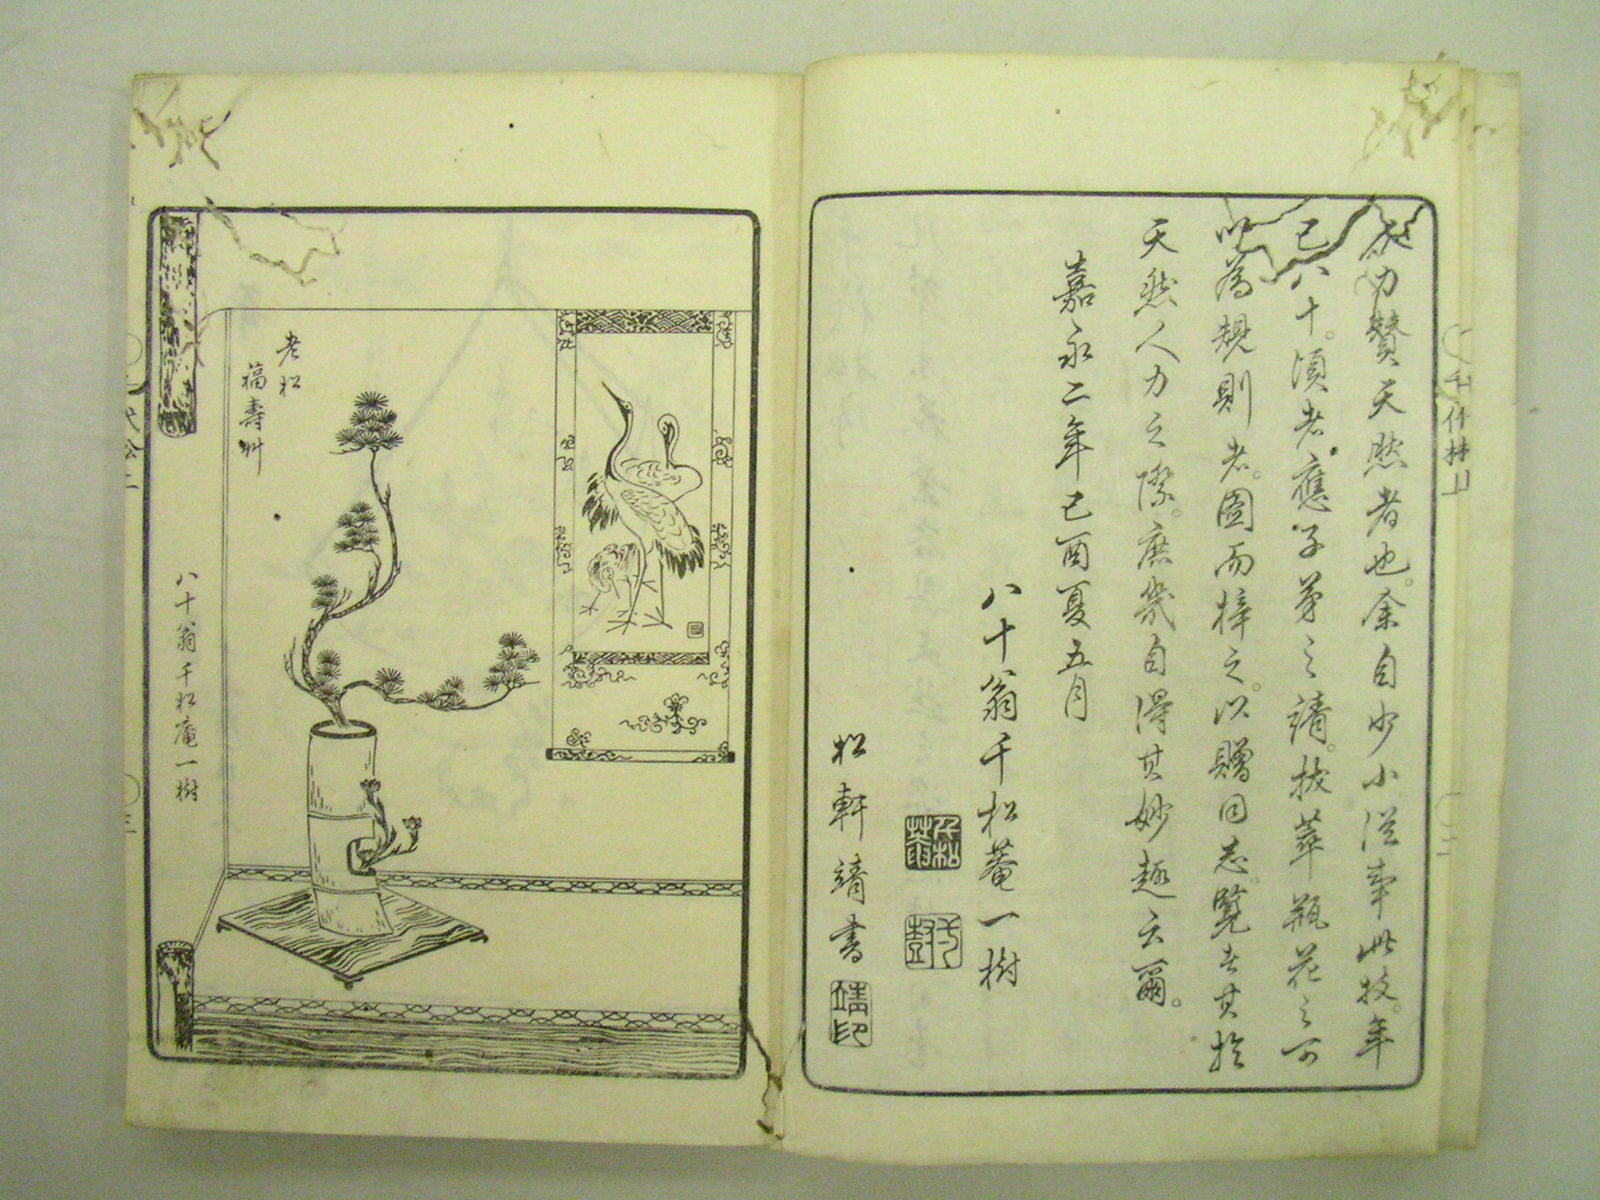 成功贊天然者也。余自少小従事此技。年
已八十。頃者應子弟之請。抜萃瓶花之可
以為規則者。圖而梓之。以贈同志。覧者其於
天然人力之際。庶幾自得其妙趣云爾。
嘉永二年己酉夏五月
八十翁千松菴一樹
松軒靖書
靖印
老松
福壽艸
八十翁千松庵一樹